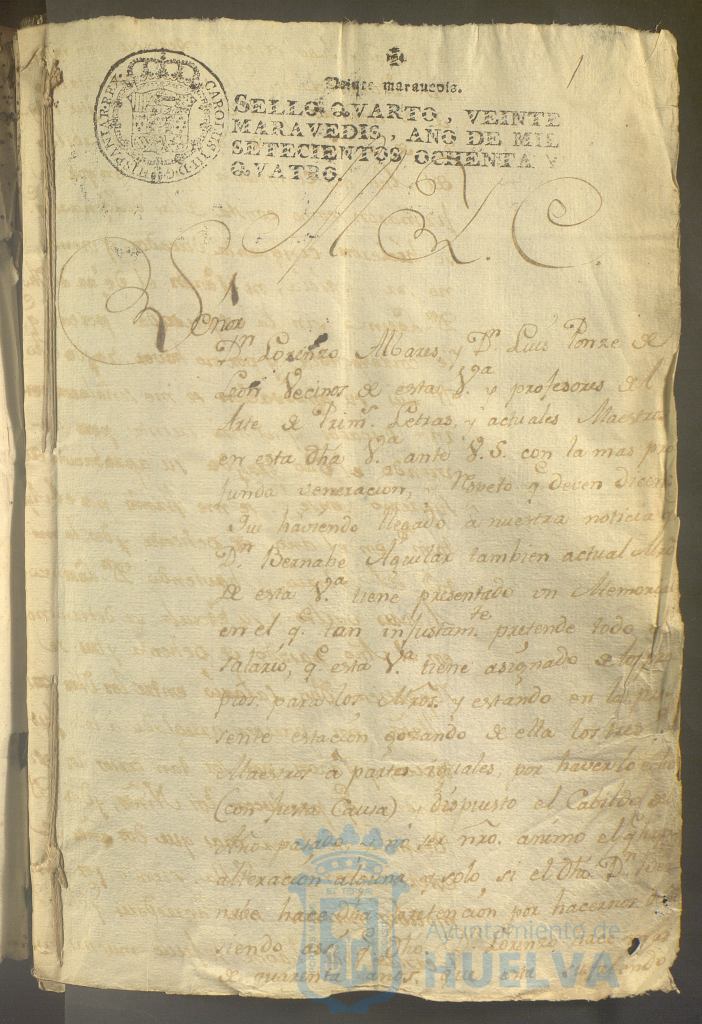 1
Veinte maravedis.
SELLO QVARTO, VEINTE
MARAVEDIS, AÑO DE MIL
SETECIENTOS OCHENTA Y
QVATRO.
CAROLUS III D G HISPANIAR REX
M. Y. C.
Señor
Dn. Lorenzo Albares, y Dn. Luis Ponze de
Leon Vecinos de esta Va. y profesores del
Arte de Prims. Letras, y actuales Maestros
en esta dha Va. ante V.S. con la mas pro
funda veneracion, y Rspeto qe deven dicen:
Que haviendo llegado à nuestra noticia q
Dn. Bernabe Aguilar tambien actual Mro
de esta Va. tiene presentado un Memorial
en el q. tan injustamte. pretende todo el
Salario, qe esta Va. tiene asignado de los pro
pios para los Mros. y estando en la pre
sente estacion gozando de ella los tres
Maestros à partes iguales, por haverlo echo
(con justa Causa) y dispuesto el Cabildo del
año pasado, y no ser nro. animo el qe haya
alteracion alguna, y solo si el dho Dn. Ber
nabe hace dha pretencion por hacernos
siendo asi qe dho Dn. Lorenzo hace mas
de quarenta años, que está
Ayuntamiento de
HUELVA